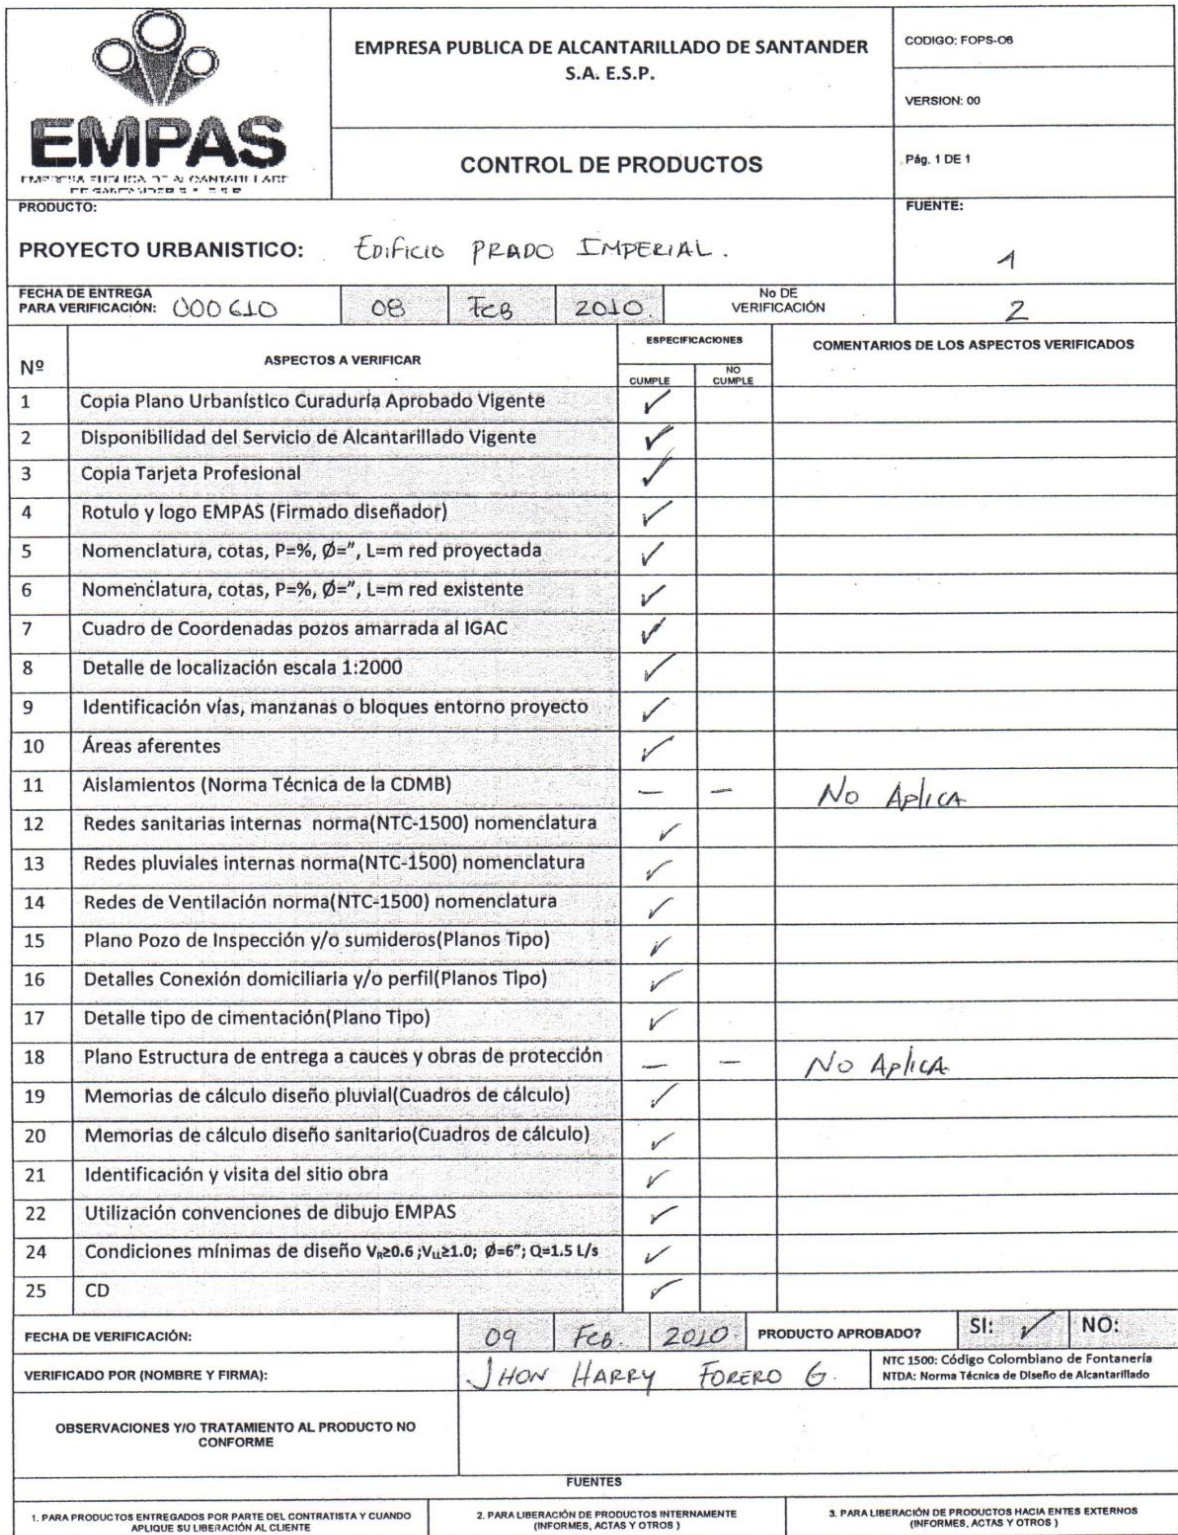 EMPAS
EMPRESA PUBLICA DE ALCANTARILLADO
DE SANTANDER S.A. E.S.P.
EMPRESA PUBLICA DE ALCANTARILLADO DE SANTANDER
S.A. E.S.P.
CODIGO: FOPS-O6
VERSION: 00
CONTROL DE PRODUCTOS
Pág. 1 DE 1
PRODUCTO:
PROYECTO URBANISTICO: Edificio PRADO IMPERIAL.
FUENTE:
1
FECHA DE ENTREGA
PARA VERIFICACIÓN: 000610 08 FEB 2010.
No DE
VERIFICACIÓN 2
Nº ASPECTOS A VERIFICAR ESPECIFICACIONES COMENTARIOS DE LOS ASPECTOS VERIFICADOS
CUMPLE NO CUMPLE
1 Copia Plano Urbanístico Curaduría Aprobado Vigente ✓
2 Disponibilidad del Servicio de Alcantarillado Vigente ✓
3 Copia Tarjeta Profesional ✓
4 Rotulo y logo EMPAS (Firmado diseñador) ✓
5 Nomenclatura, cotas, P=%, Ø=", L=m red proyectada ✓
6 Nomenclatura, cotas, P=%, Ø=", L=m red existente ✓
7 Cuadro de Coordenadas pozos amarrada al IGAC ✓
8 Detalle de localización escala 1:2000 ✓
9 Identificación vías, manzanas o bloques entorno proyecto ✓
10 Áreas aferentes ✓
11 Aislamientos (Norma Técnica de la CDMB) — — No Aplica
12 Redes sanitarias internas norma(NTC-1500) nomenclatura ✓
13 Redes pluviales internas norma(NTC-1500) nomenclatura ✓
14 Redes de Ventilación norma(NTC-1500) nomenclatura ✓
15 Plano Pozo de Inspección y/o sumideros(Planos Tipo) ✓
16 Detalles Conexión domiciliaria y/o perfil(Planos Tipo) ✓
17 Detalle tipo de cimentación(Plano Tipo) ✓
18 Plano Estructura de entrega a cauces y obras de protección — — No Aplica
19 Memorias de cálculo diseño pluvial(Cuadros de cálculo) ✓
20 Memorias de cálculo diseño sanitario(Cuadros de cálculo) ✓
21 Identificación y visita del sitio obra ✓
22 Utilización convenciones de dibujo EMPAS ✓
24 Condiciones mínimas de diseño VR≥0.6 ;VLL≥1.0; Ø=6"; Q=1.5 L/s ✓
25 CD ✓
FECHA DE VERIFICACIÓN: 09 FEB. 2010. PRODUCTO APROBADO? SI: ✓ NO:
VERIFICADO POR (NOMBRE Y FIRMA): JHON HARRY FORERO G.
NTC 1500: Código Colombiano de Fontanería
NTDA: Norma Técnica de Diseño de Alcantarillado
OBSERVACIONES Y/O TRATAMIENTO AL PRODUCTO NO
CONFORME
FUENTES
1. PARA PRODUCTOS ENTREGADOS POR PARTE DEL CONTRATISTA Y CUANDO
APLIQUE SU LIBERACIÓN AL CLIENTE
2. PARA LIBERACIÓN DE PRODUCTOS INTERNAMENTE
(INFORMES, ACTAS Y OTROS )
3. PARA LIBERACIÓN DE PRODUCTOS HACIA ENTES EXTERNOS
(INFORMES, ACTAS Y OTROS )